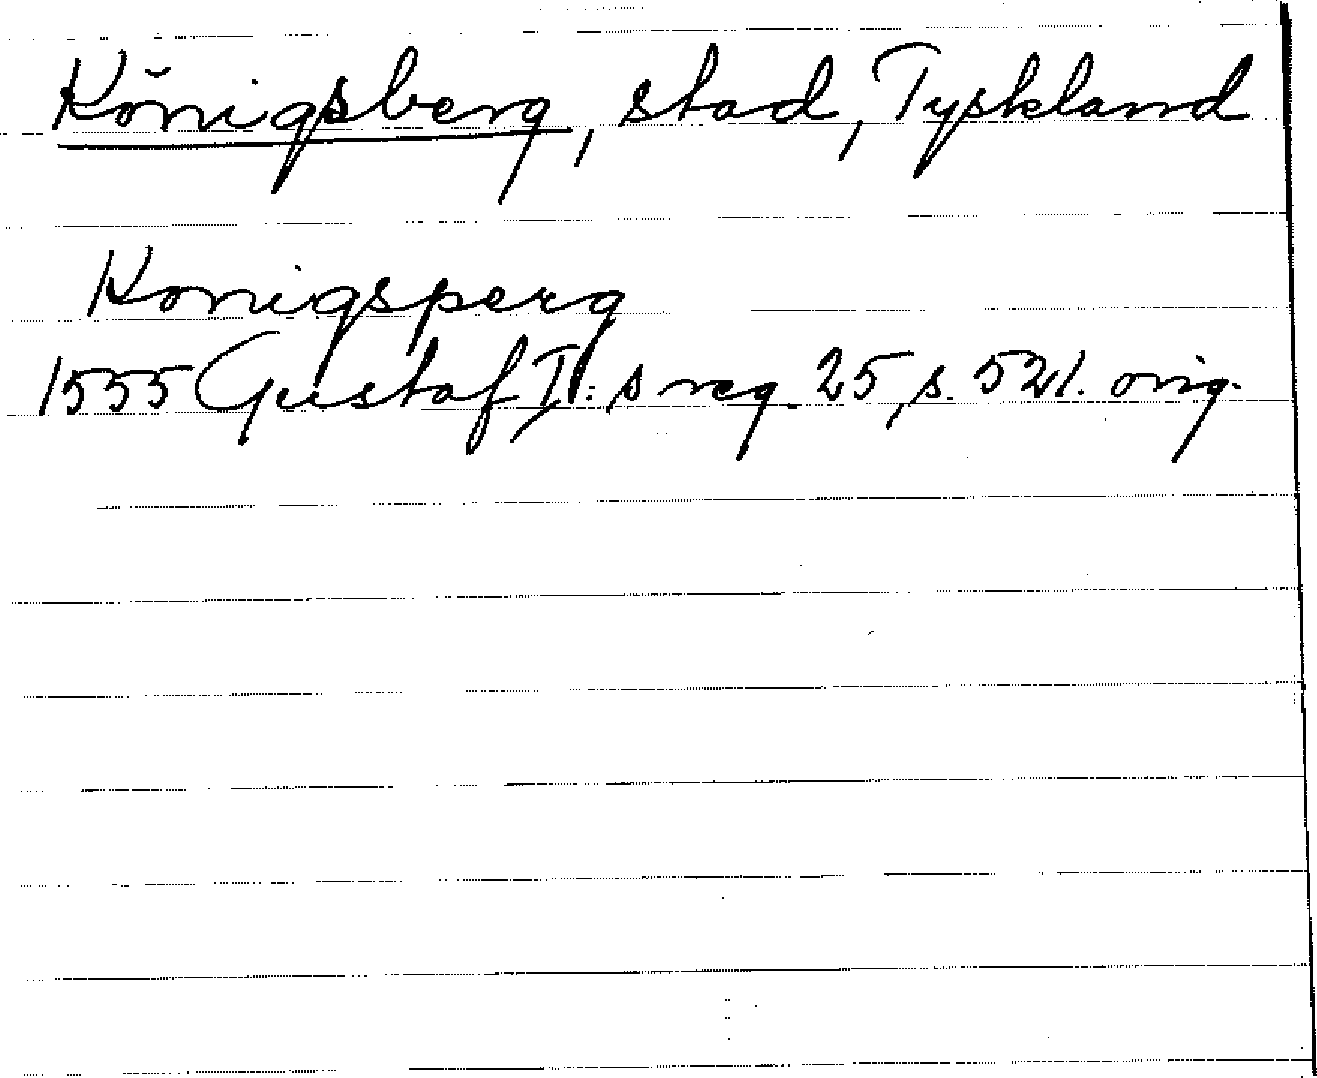 Königsberg, stad, Tyskland
Konigsperg
1555 Gustaf I:s reg. 25, s. 521. orig.